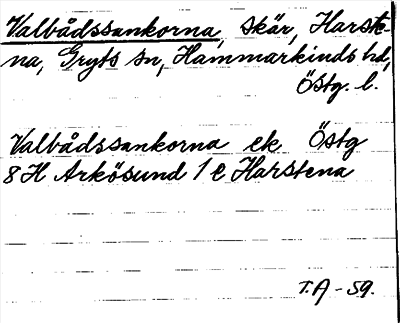 Valbådssankorna, skär, Harste-
na, Gryts sn, Hammarkinds hd,
Östg. l.
Valbådssankorna ek Östg
8H Arkösund 1 e Harstena
T.A -59.